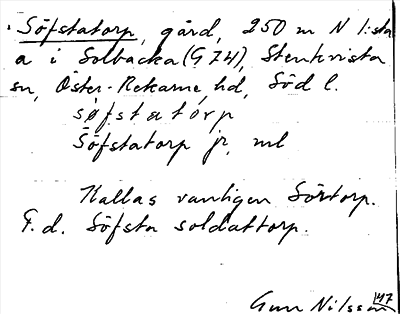 Söfstatorp, gård, 250 m N l:sta
a i Solbacka (G 74), Stenkvista
sn, Öster-Rekarne hd, Söd l.
söfstatórp
Söfstatorp jr, ml
Kallas vanligen Sörtorp.
F. d. Söfsta soldattorp.
Gun Nilsson
47